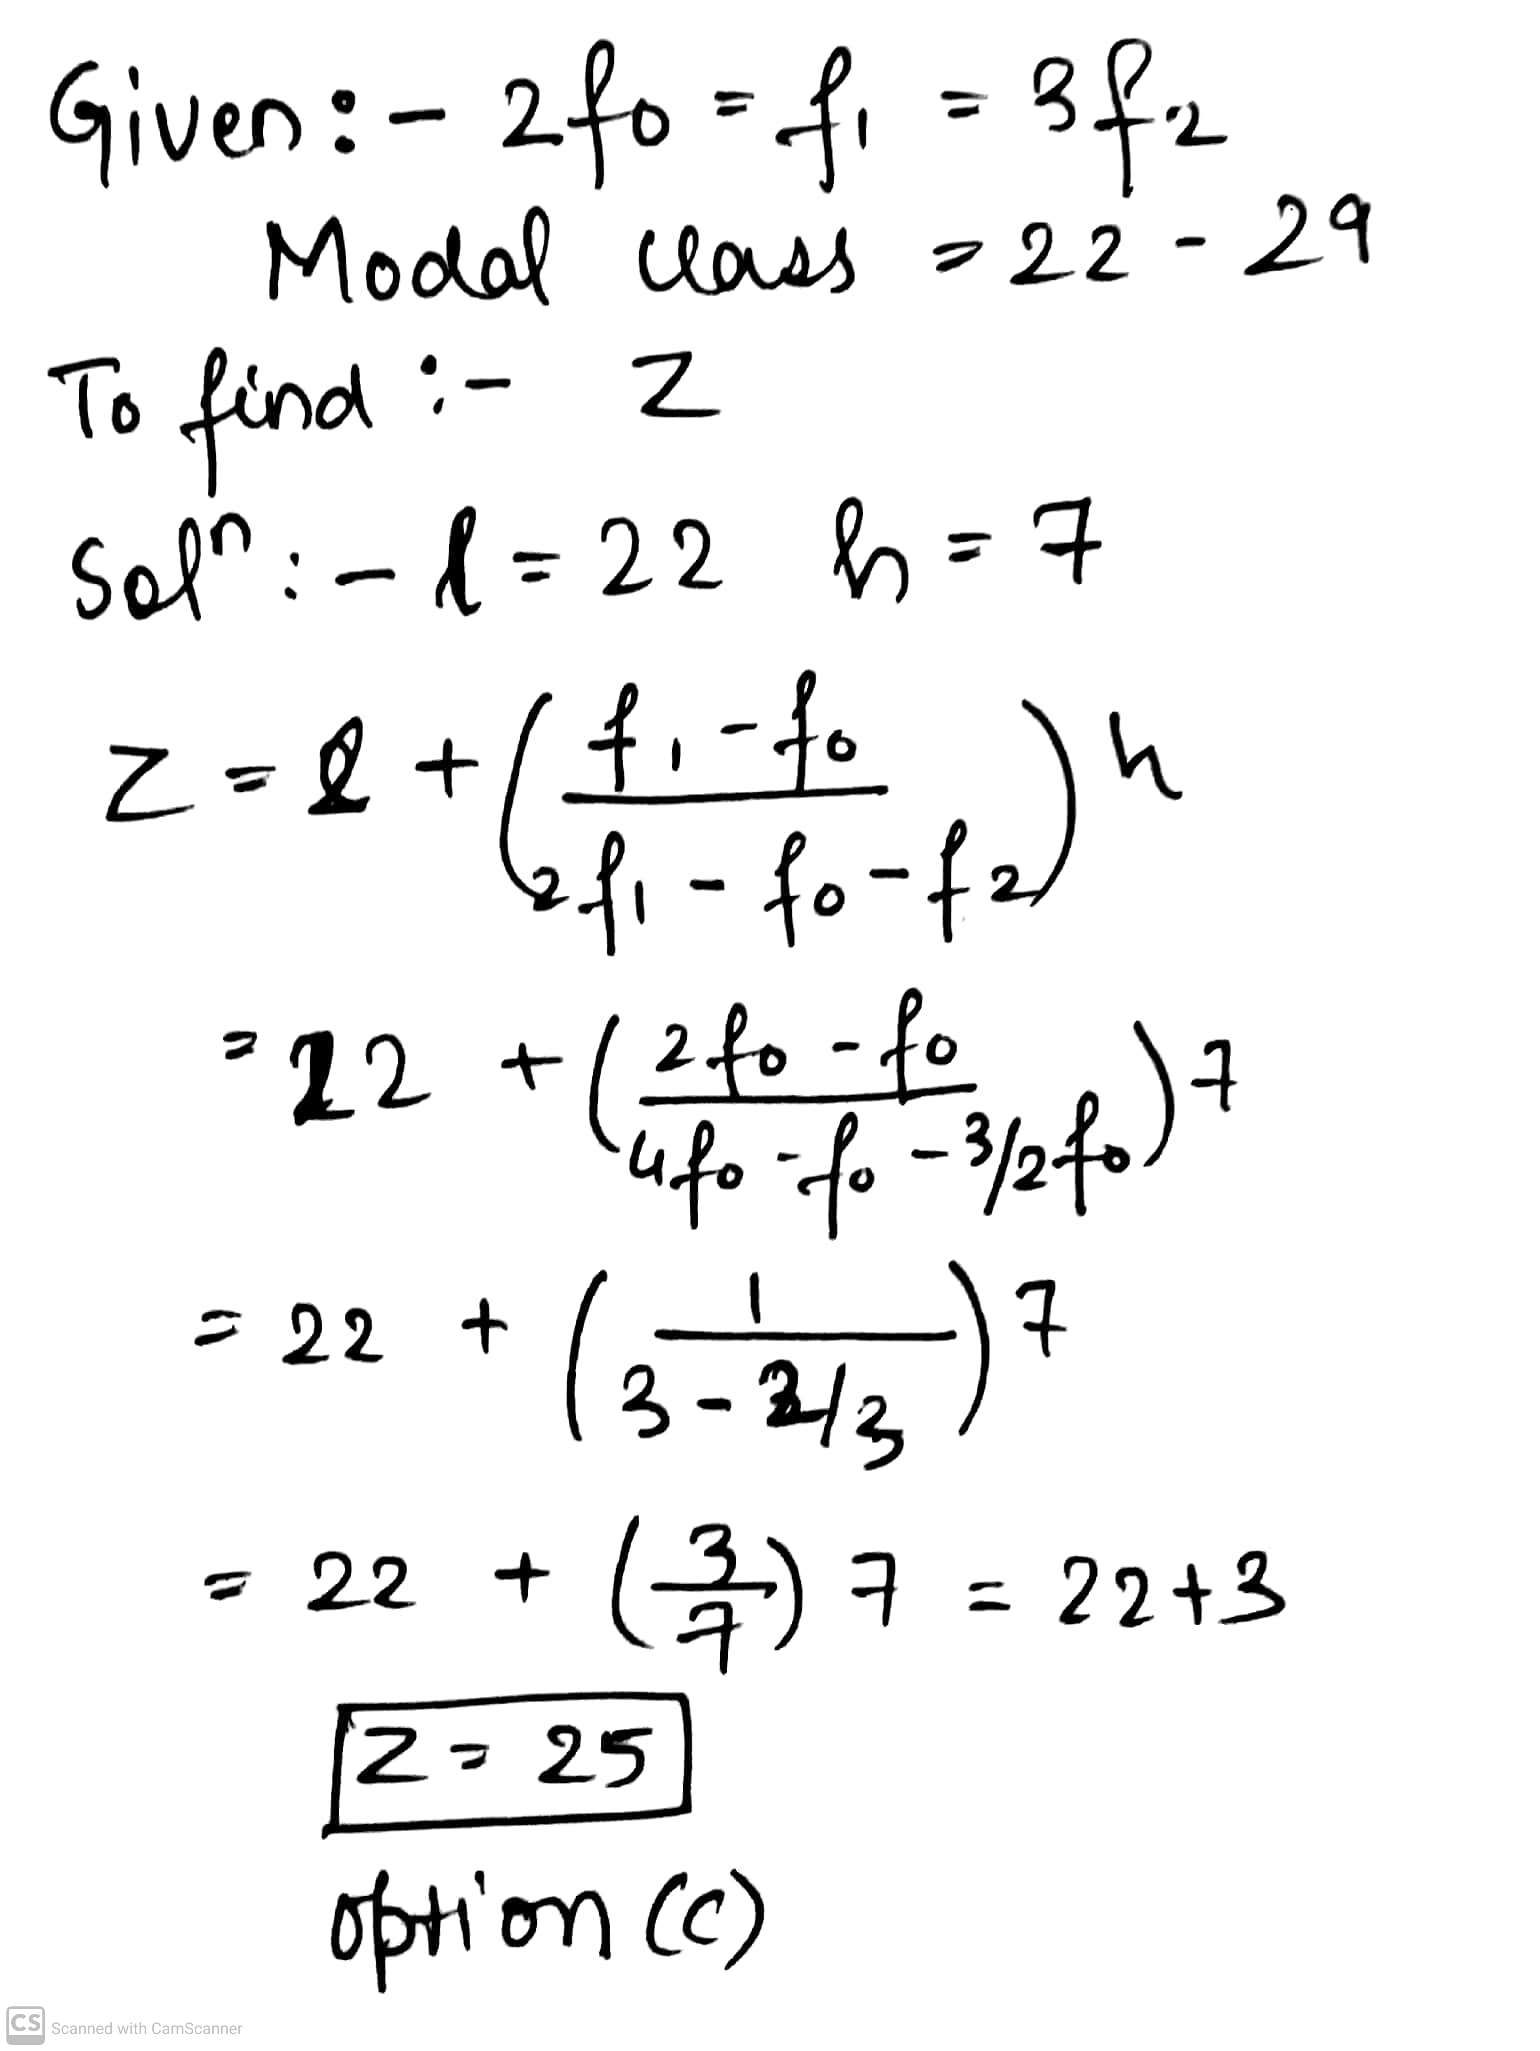 Given :- 2f0 = f1 = 3f2
Modal class = 22 - 29
To find :- Z
Solⁿ :- l = 22 h = 7
Z = l + ( (f1 - f0) / (2f1 - f0 - f2) ) h
= 22 + ( (2f0 - f0) / (4f0 - f0 - 3/2 f0) ) 7
= 22 + ( 1 / (3 - 2/3) ) 7
= 22 + ( 3/7 ) 7 = 22+3
Z = 25
option (c)
CS Scanned with CamScanner